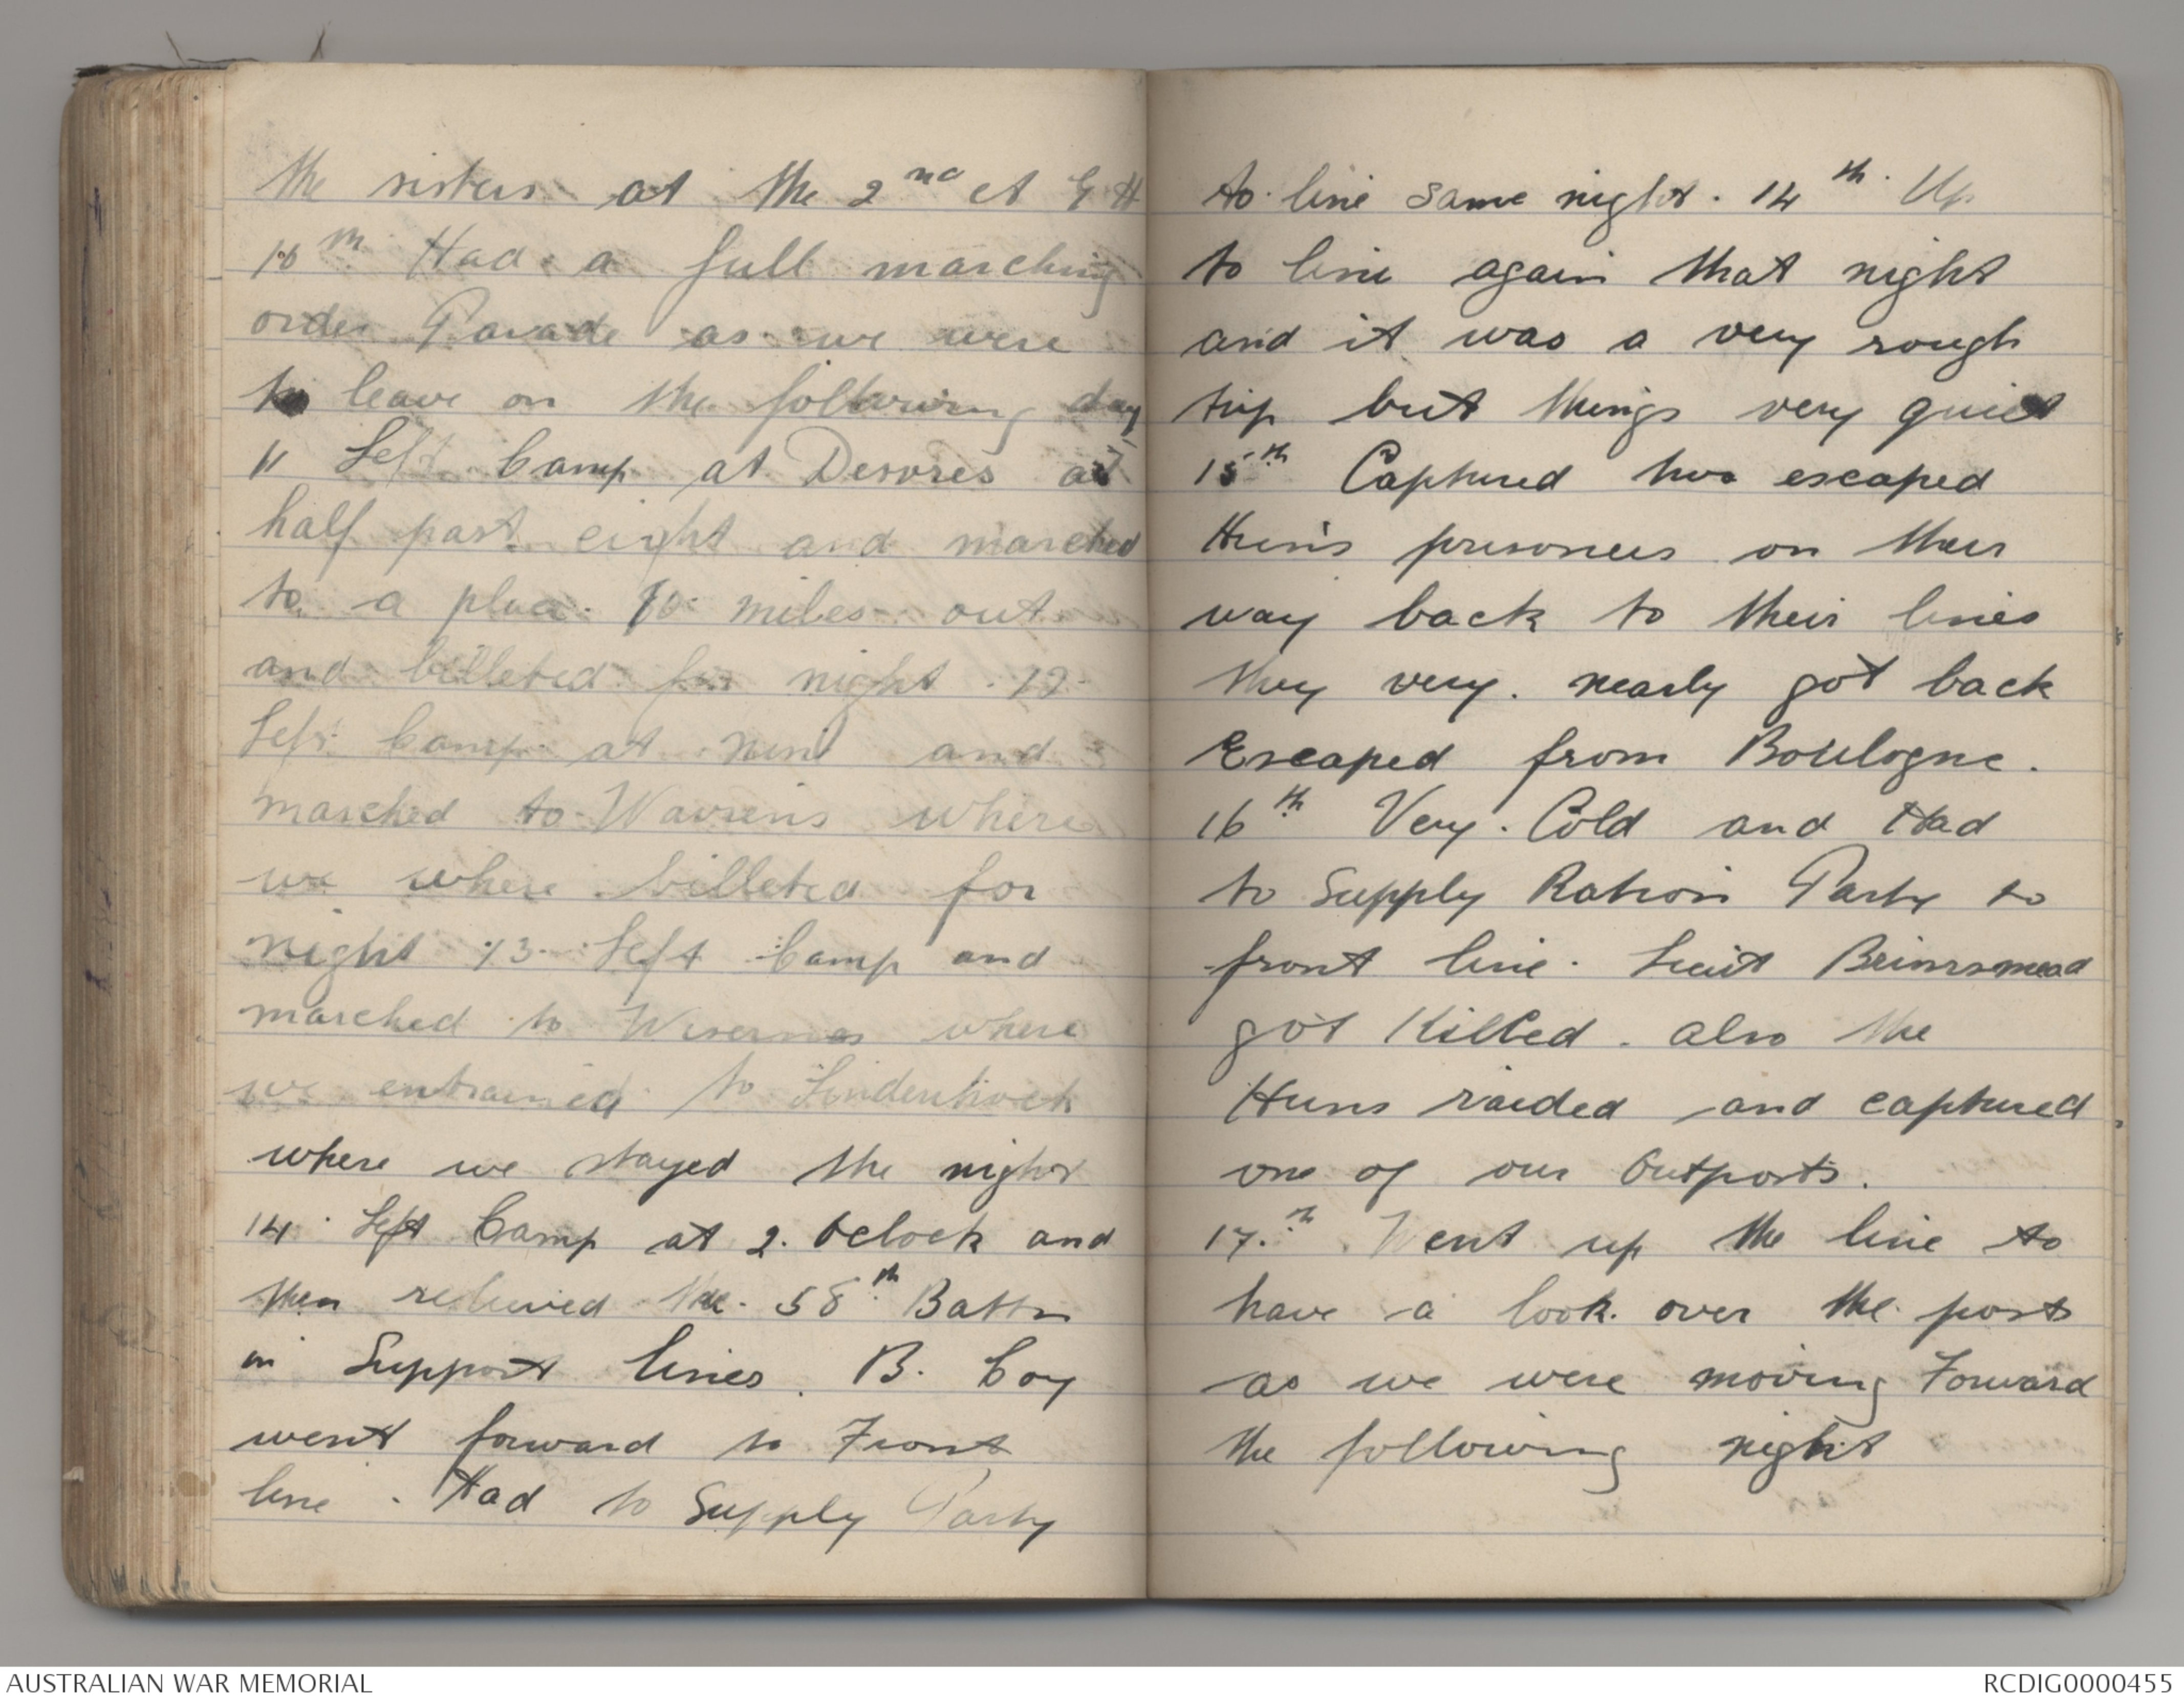 the sisters at the 2nd
10th Had a full marching
order Parade as we were
to leave on the following day
11 Left Camp at Desvres at
half past eight and marched
to a place 10 miles out
and billeted for night . 12
Left Camp at nine and
marched to Wavrens where
we where billeted for
night 13 Left Camp and
marched to Wisernes where
we entrained to Lindenhoek
where we stayed the night
14 Left Camp at 2. oclock and
then relieved the 58th Battn
in Support lines. B. Coy
went forward to Front
line . Had to Supply Party
to line same night. 14th Up
to line again that night
and it was a very rough
trip but things very quiet
15th Captured two escaped
Huns prisoners on their
way back to their lines
they very. nearly got back
Escaped from Boulogne.
16th Very. Cold and Had
to Supply Ration Party to
front line. Lieut Brinsmead
got Killed. also the
Huns raided and captured
one of our Outposts.
17th Went up the line to
have a look over the posts
as we were moving Forward
the following night
AUSTRALIAN WAR MEMORIAL
RCDIG0000455